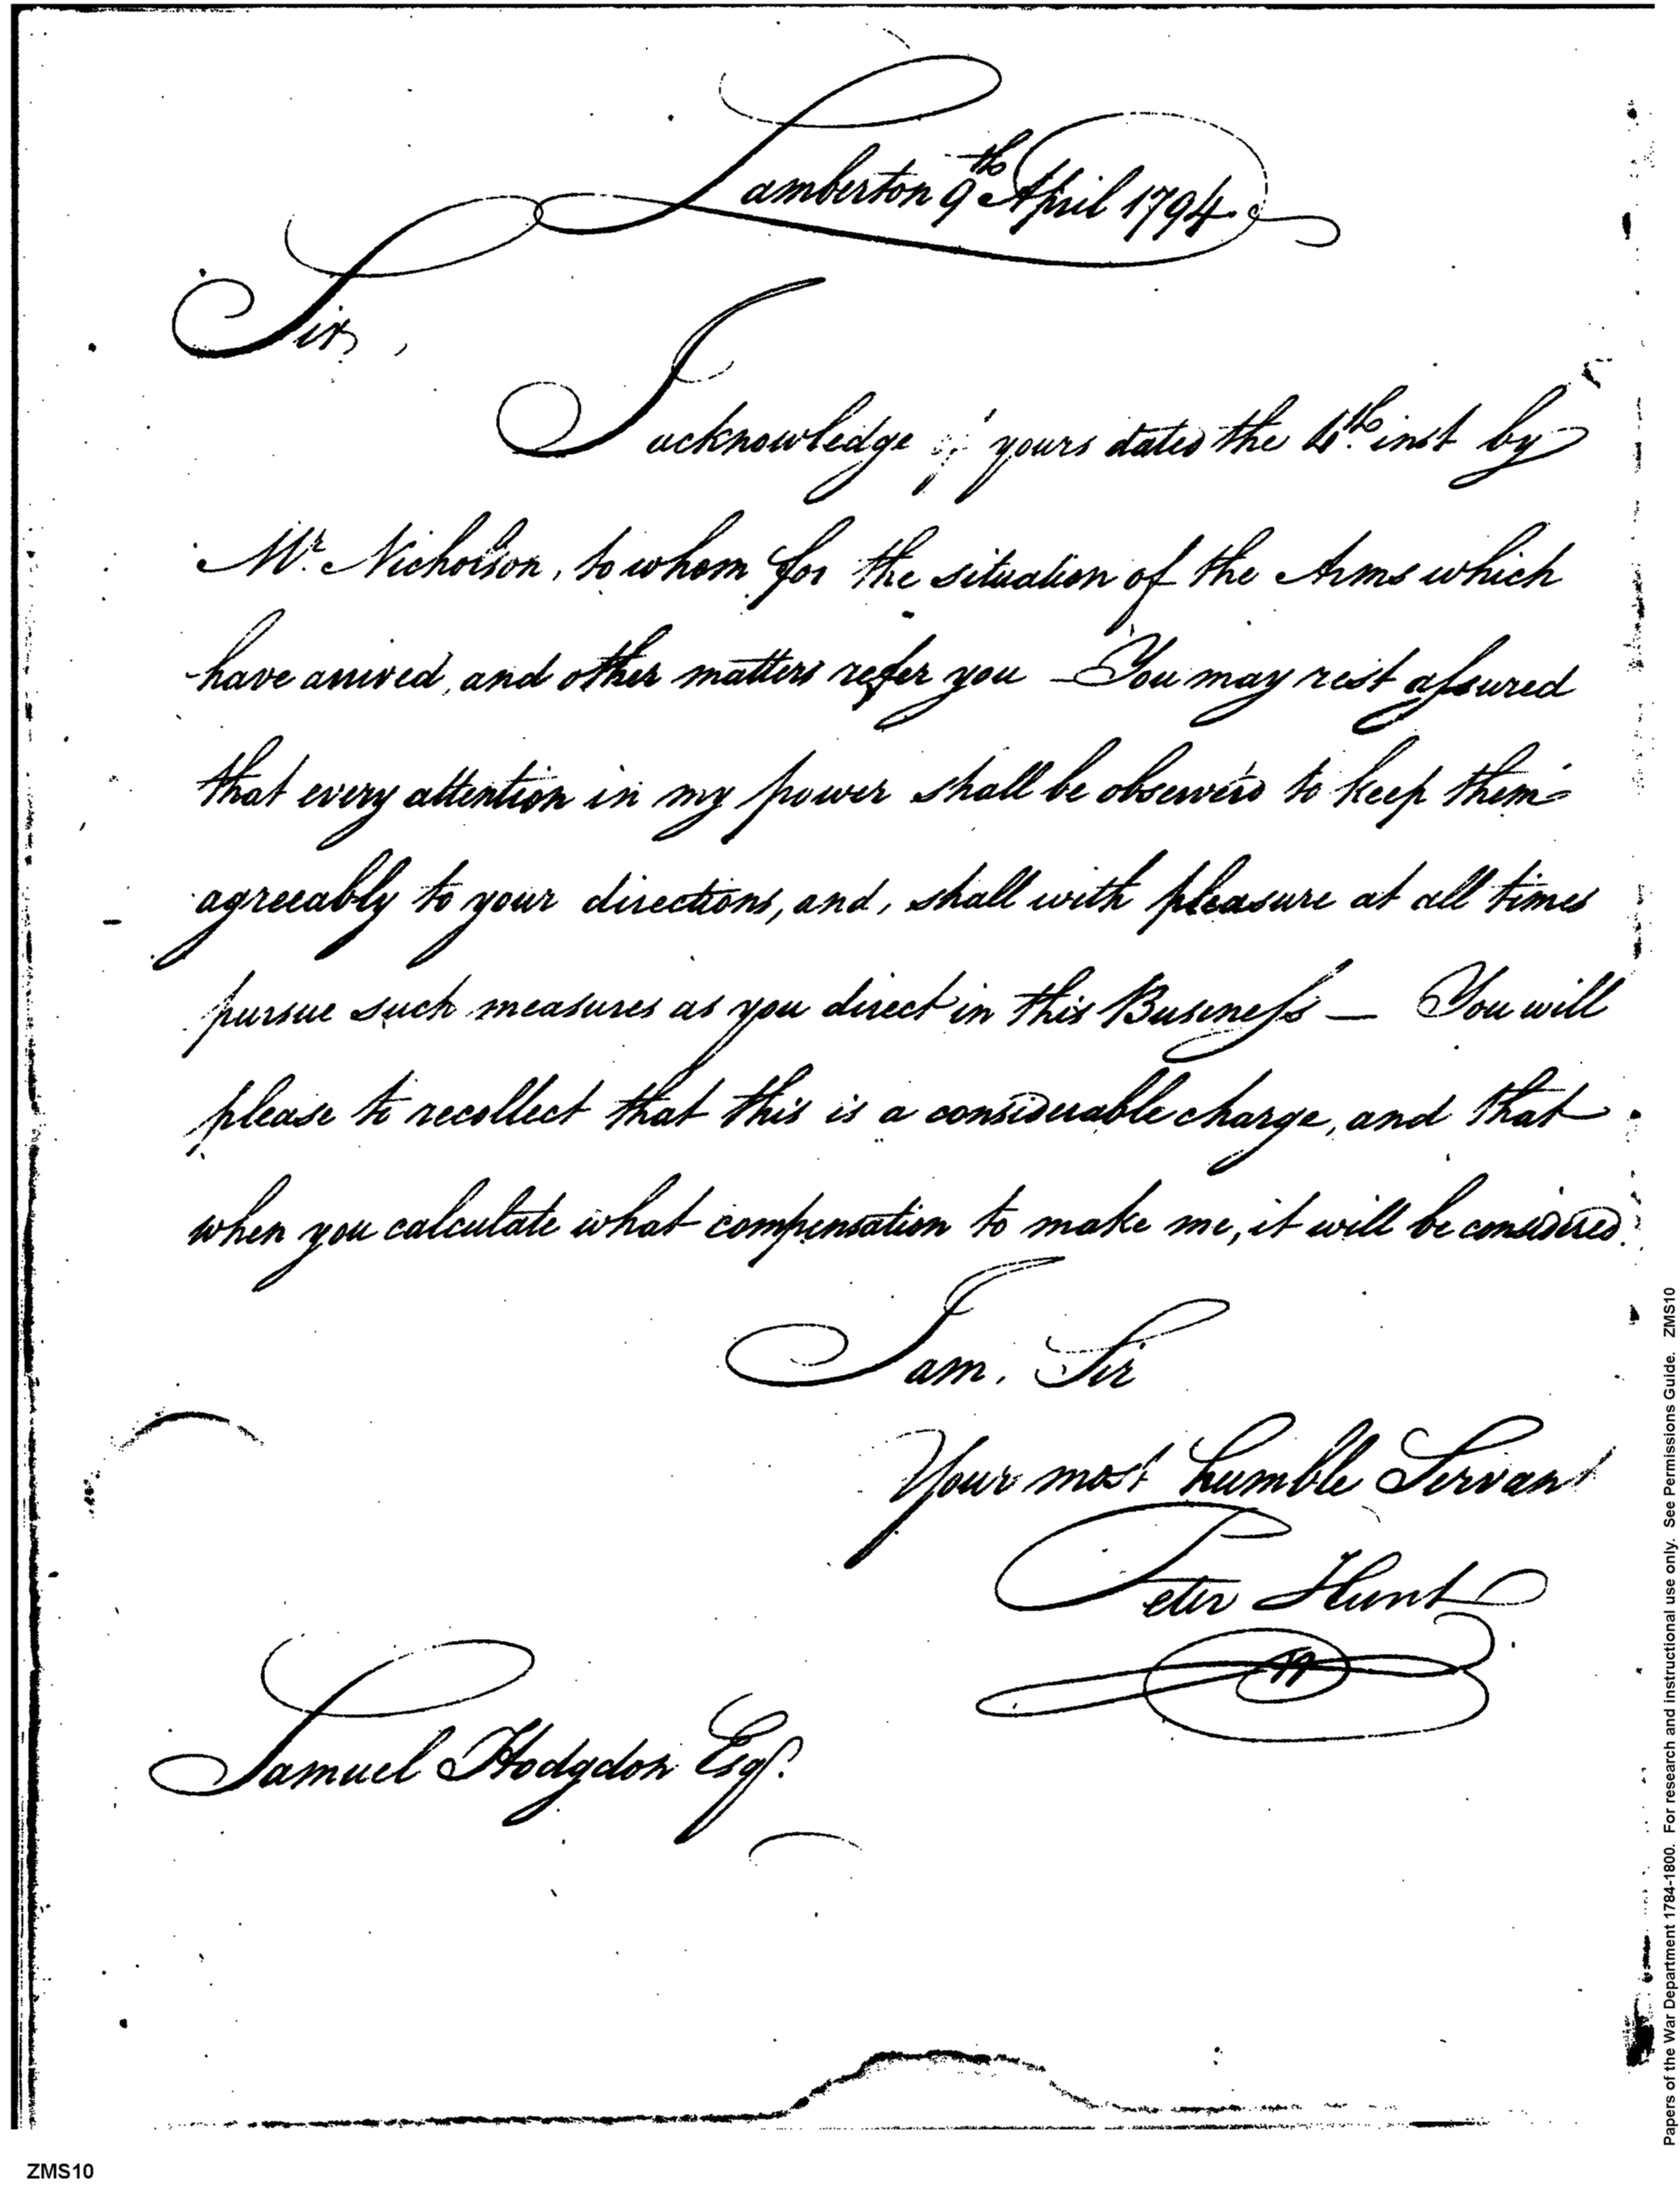 Lamberton 9th April 1794.
Sir,
I acknowledge yours dated the 4th inst by
Mr. Nicholson, to whom for the situation of the Arms which
have arrived, and other matters refer you – You may rest assured
that every attention in my power shall be observ'd to keep them
agreeably to your directions, and, shall with pleasure at all times
pursue such measures as you direct in this Buseness — You will
please to recollect that this is a considerable charge, and that
when you calculate what compensation to make me, it will be considered.
I am, Sir
Your most humble Servant
Peter Hunt
Samuel Hodgdon Esqr.
Papers of the War Department 1784-1800. For research and instructional use only. See Permissions Guide. ZMS10
ZMS10